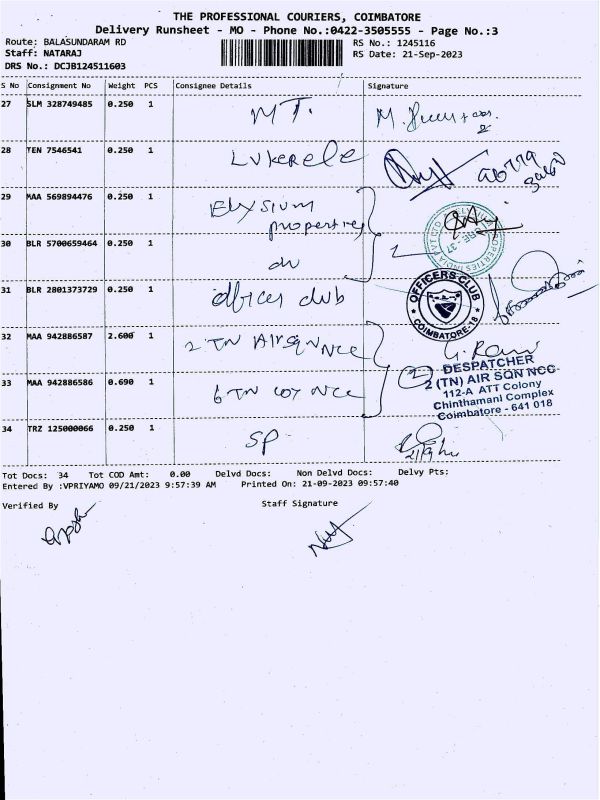 THE PROFESSIONAL COURIERS, COIMBATORE
Delivery Runsheet - MO - Phone No.:0422-3505555 - Page No.:3
Route: BALASUNDARAM RD
RS No.: 1245116
Staff: NATARAJ
RS Date: 21-Sep-2023
DRS No.: DCJB124511603
S No Consignment No Weight PCS Consignee Details Signature
27 SLM 328749485 0.250 1 MT.
28 TEN 7546541 0.250 1
29 MAA 569894476 0.250 1 Elysium properties
30 BLR 5700659464 0.250 1 do
31 BLR 2801373729 0.250 1 officer club
OFFICERS CLUB
COIMBATORE-18
32 MAA 942886587 2.600 1 2 TN AIR SQN NCC
33 MAA 942886586 0.690 1 6 TN coy NCC
2
DESPATCHER
2 (TN) AIR SQN NCC
112-A ATT Colony
Chinthamani Complex
Coimbatore - 641 018
34 TRZ 125000066 0.250 1 SP
Tot Docs: 34 Tot COD Amt: 0.00 Delvd Docs: Non Delvd Docs: Delvy Pts:
Entered By :VPRIYAMO 09/21/2023 9:57:39 AM Printed On: 21-09-2023 09:57:40
Verified By Staff Signature